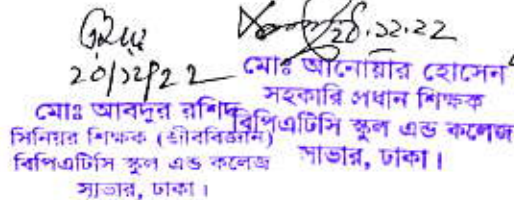 20/12/22
মোঃ আবদুর রশিদ
সিনিয়র শিক্ষক (জীববিজ্ঞান)
বিপিএটিসি স্কুল এন্ড কলেজ
সাভার, ঢাকা।
২৮.১২.২২
মোঃ আনোয়ার হোসেন
সহকারি প্রধান শিক্ষক
বিপিএটিসি স্কুল এন্ড কলেজ
সাভার, ঢাকা।